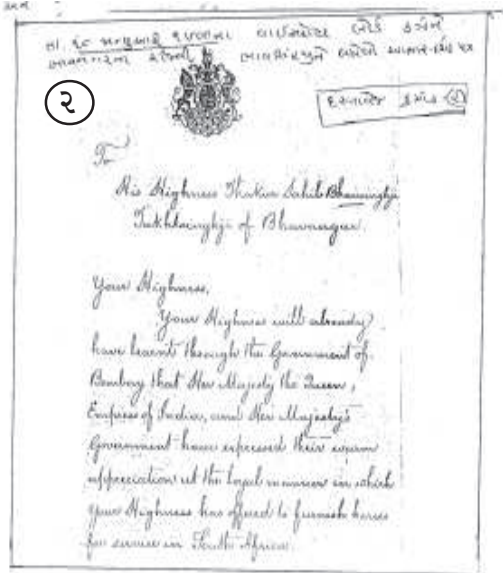 તા. ૧૮ જાન્યુઆરી ૧૯૦૦ના વાઈસરોય લોર્ડ કર્ઝને
ભાવનગરના ભાવસિંહજીને લખેલો આભાર-દર્શક પત્ર
૨
દસ્તાવેજ ક્રમાંક-(૨)
To
His Highness Thakur Sahib Bhavsinghji
Takhtsinghji of Bhavnagar.
Your Highness,
Your Highness will already
have learnt through the Government of
Bombay that Her Majesty the Queen,
Empress of India, and Her Majesty's
Government have expressed their warm
appreciation at the loyal manner in which
your Highness has offered to furnish horses
for service in South Africa.